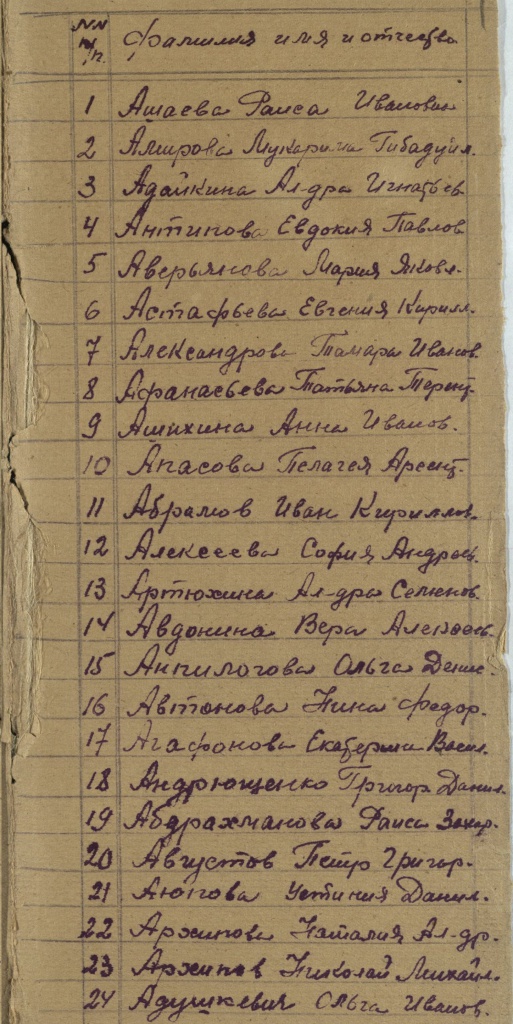 NN п/п. Фамилия имя и отчество
1 Ашаева Раиса Ивановн
2 Амирова Мукарима Гибадуйл.
3 Адайкина Ал-дра Игнатьев
4 Антипова Евдокия Павлов
5 Аверьянова Мария Яковл.
6 Астафьева Евгения Кирилл.
7 Александрова Тамара Иванов.
8 Афанасьева Татьяна Терент.
9 Ашихина Анна Иванов.
10 Апасова Пелагея Арсент.
11 Абрамов Иван Кириллов.
12 Алексеева София Андреев.
13 Артюхина Ал-дра Семенов.
14 Авдонина Вера Алексеев.
15 Анпилогова Ольга Данил.
16 Автонова Нина Федор.
17 Агафонова Екатерина Васил.
18 Андрющенко Григор. Данил.
19 Абдрахманова Раиса Закир.
20 Августов Петр Григор.
21 Аюпова Устиния Данил.
22 Архипова Наталия Ал-др.
23 Архипов Николай Михайл.
24 Адушкевич Ольга Иванов.